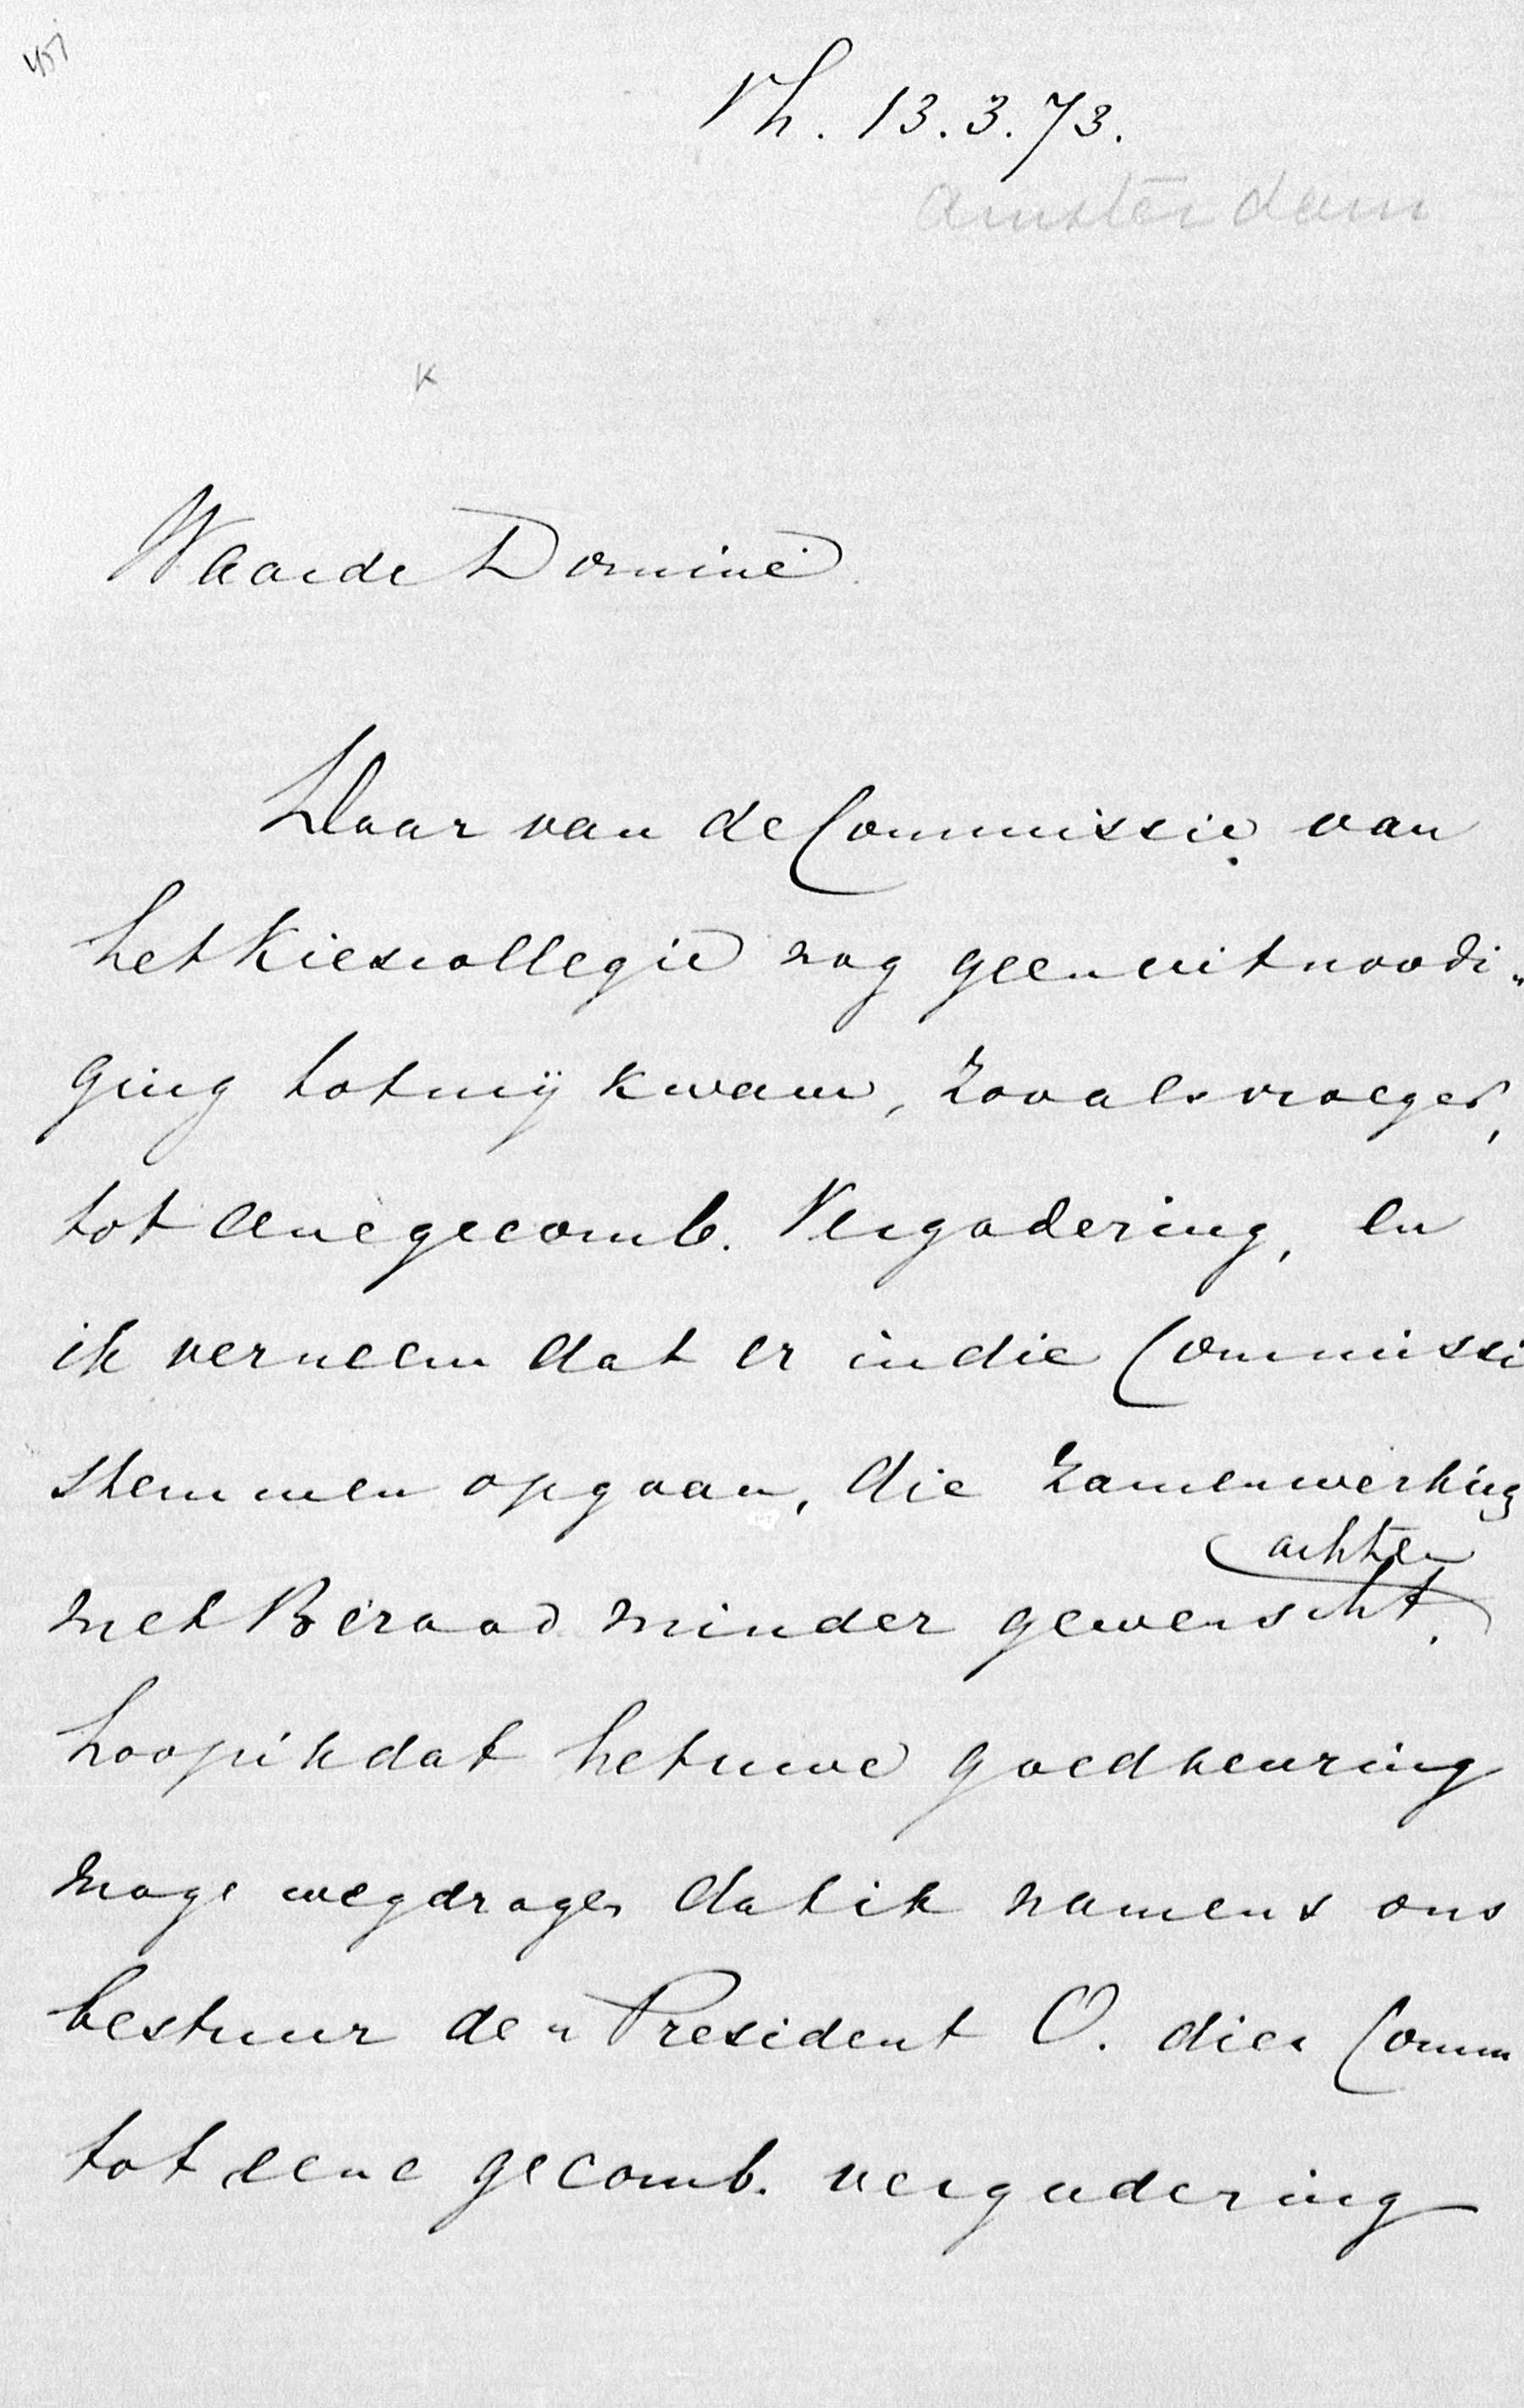 457
Vh. 13.3.73.
Amsterdam
K
Waarde Dominé
Daar van de Commissie van
het Kiescollegie nog geen uitnoodi-
ging tot mij kwam, zooals vroeger,
tot eene gecomb. Vergadering, en
ik verneem dat er in die Commissi
stemmen opgaan, die zamenwerking
achten
met Beraad minder gewenscht.
hoop ik dat het uwe goedkeuring
moge wegdragen dat ik namens ons
bestuur den President O. dier Comm
tot eene gecomb. vergadering